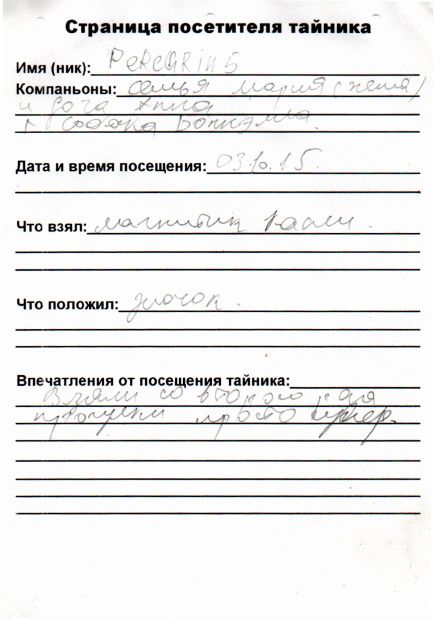 Страница посетителя тайника
Имя (ник): PeReGRin5
Компаньоны: семья Мария (жена)
и доча Анна
+ собака
Дата и время посещения: 03.10.15.
Что взял: магнитик
Что положил: значок.
Впечатления от посещения тайника:
Взяли со второго
прогулки просто супер.